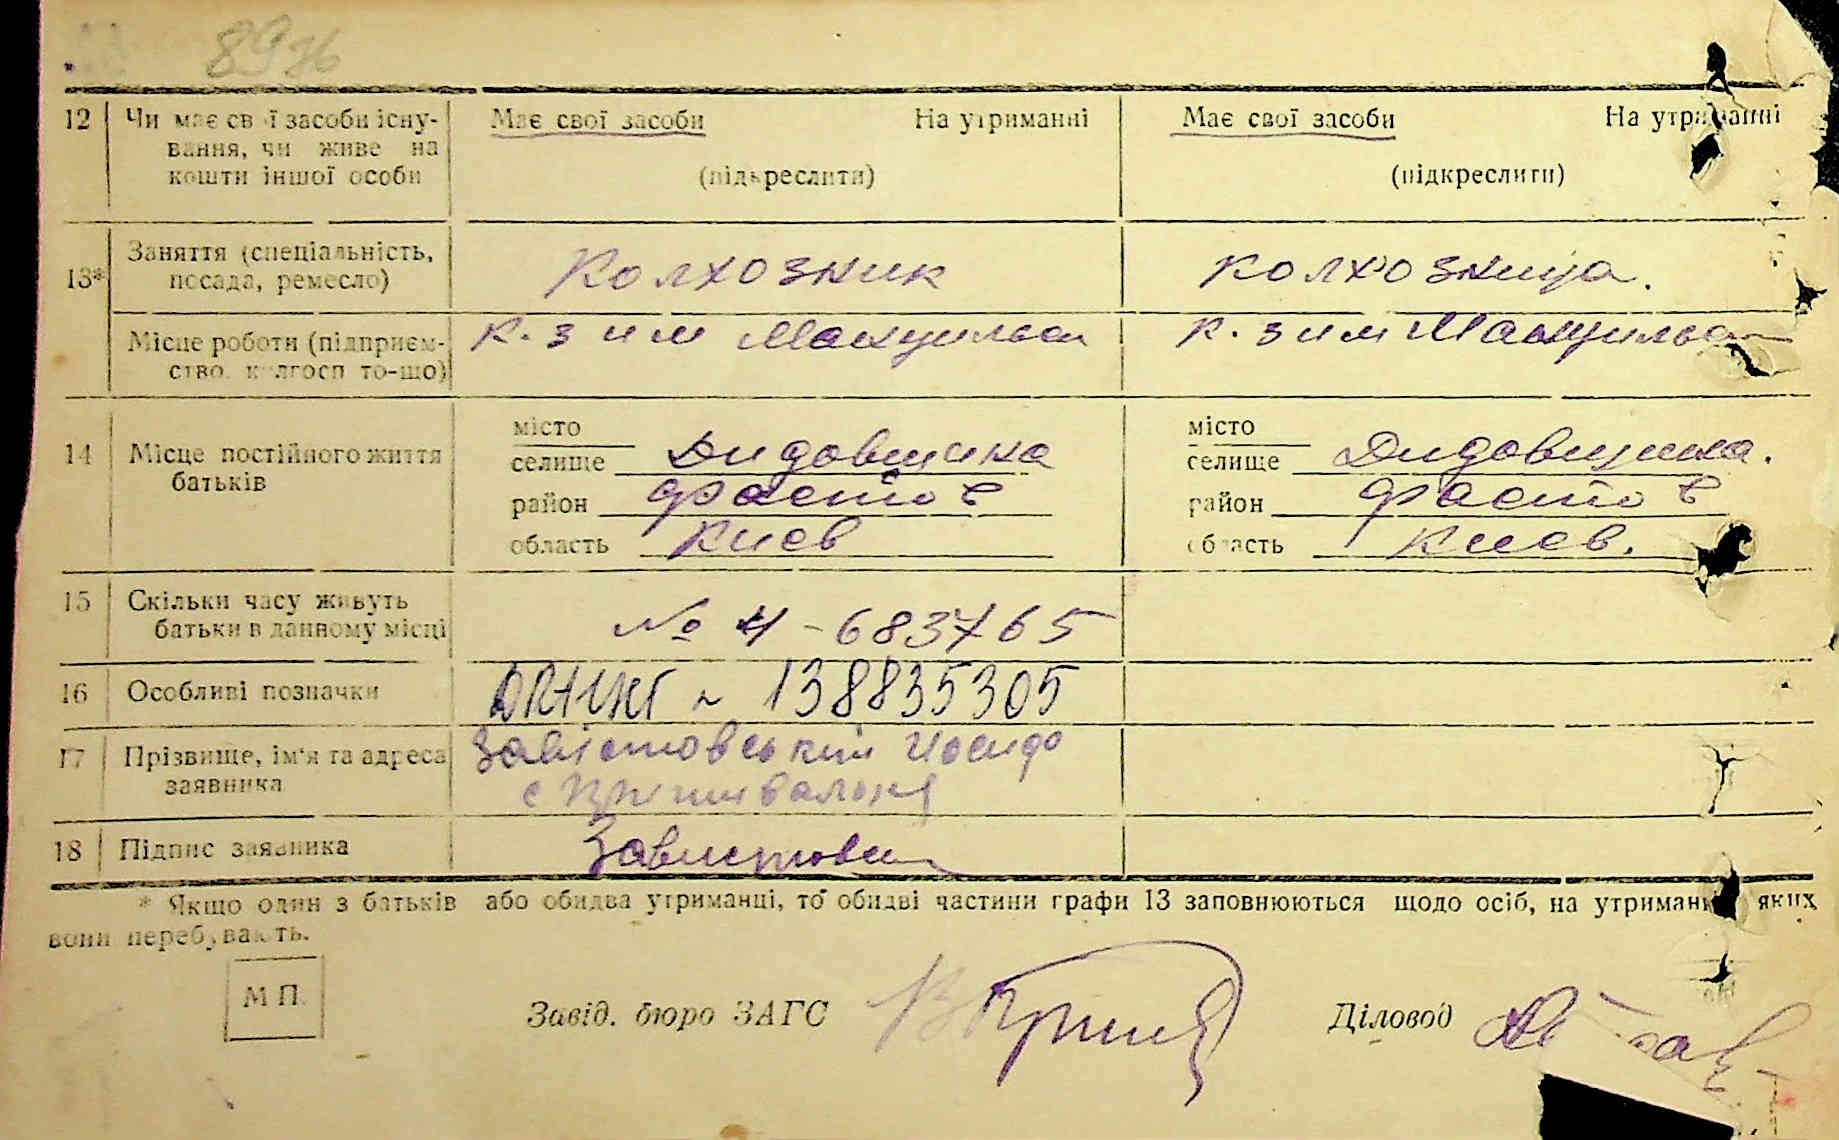 89 зв
12 Чи має свої засоби існу- Має свої засоби На утриманні Має свої засоби На утриманні
вання, чи живе на
кошти іншої особи (підкреслити) (підкреслити)
13* Заняття (спеціальність, Колхозник колхозница.
посада, ремесло)
Місце роботи (підприєм- К. з им к. з им
ство, колгосп то-що)
місто місто
14 Місце постійного життя селище Дидовщина селище Дидовщина.
батьків район Фастов район Фастов
область Киев область Киев.
15 Скільки часу живуть № 4-683765
батьки в данному місці
16 Особливі позначки 138835305
17 Прізвище, ім'я та адреса
заявника с
18 Підпис заявника
* Якщо один з батьків або обидва утриманці, то обидві частини графи 13 заповнюються щодо осіб, на утриманні яких
вони перебувають.
М П.
Завід. бюро ЗАГС Діловод